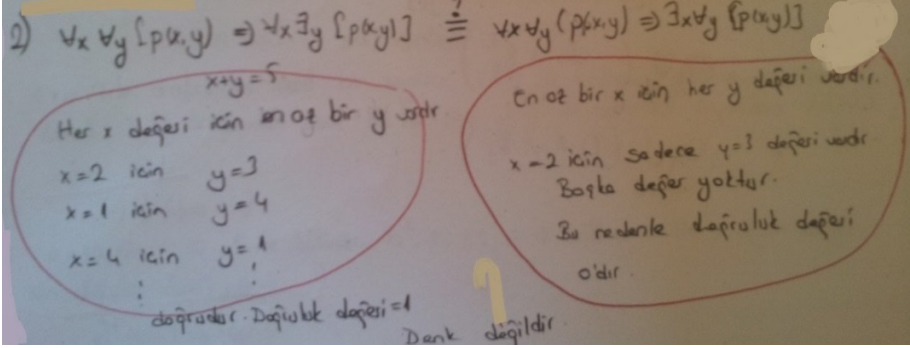 2) ∀x ∀y [p(x,y) ⇒ ∀x ∃y [p(x,y)] ≟ ∀x∀y (p(x,y) ⇒ ∃x∀y [p(x,y)]
x+y=5
Her x değeri için en az bir y vardır
x=2 için y=3
x=1 için y=4
x=4 için y=1
⋮ ⋮
doğrudur. Doğruluk değeri=1
En az bir x için her y değeri vardır.
x=2 için sadece y=3 değeri vardır
Başka değer yoktur.
Bu nedenle doğruluk değeri
0'dır.
Denk değildir.